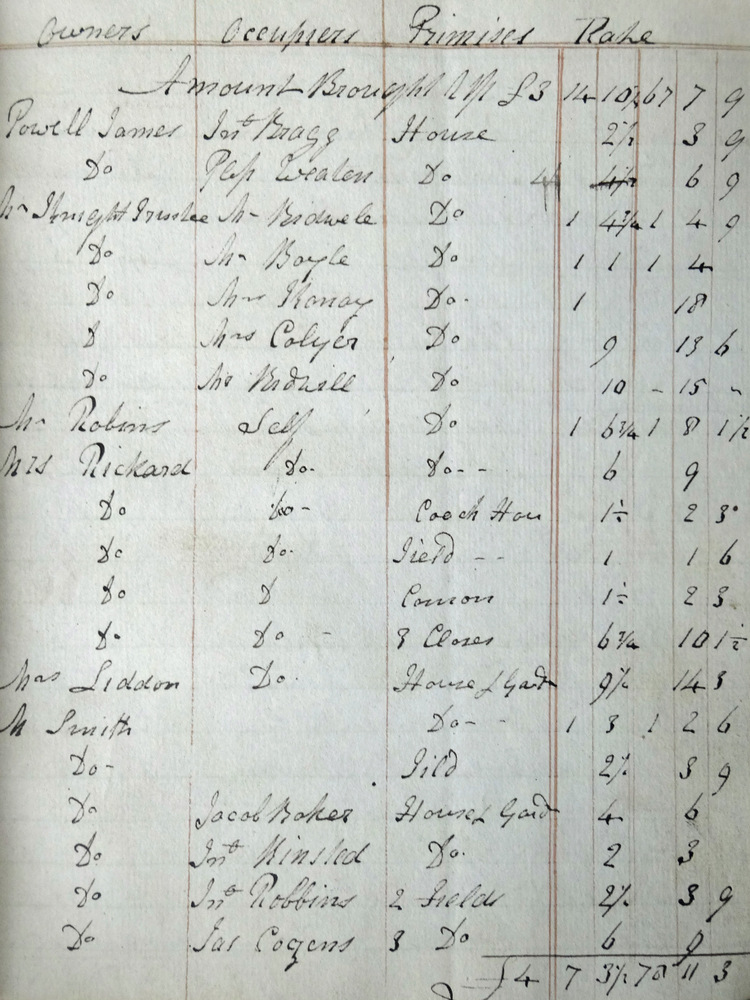 Owners Occupiers Primises Rate
Amount Brought Up £3 14 10½ 67 7 9
Powell James Jnº Bragg House 2½ 3 9
Do Do 4 6 9
Mr Knight Trustee Mr Bidwele Do 1 4¾ 1 4 9
Do Mr Boyle Do 1 1 1 4
Do Mrs Do 1 18
D Mrs Colyer Do 9 13 6
Do Mr Do 10 - 15 -
Mr Robins Self Do 1 6¾ 1 8 1½
Mrs Rickard Do Do - - 6 9
Do Do - Coach Hou 1½ 2 3
Do Do Field - - 1 1 6
Do D Comon 1½ 2 3
Do Do - 3 Closes 6¾ 10 1½
Mrs Liddon Do House & Gard 9½ 14 3
M Smith Do - - 1 3 1 2 6
Do - Fild 2½ 3 9
Do Jacob Baker House & Gard 4 6
Do Jnº Kinsled Do 2 3
Do Jnº Robbins 2 Fields 2½ 3 9
Do Jas Cozens 3 Do 6 9
£4 7 3½ 78 11 3